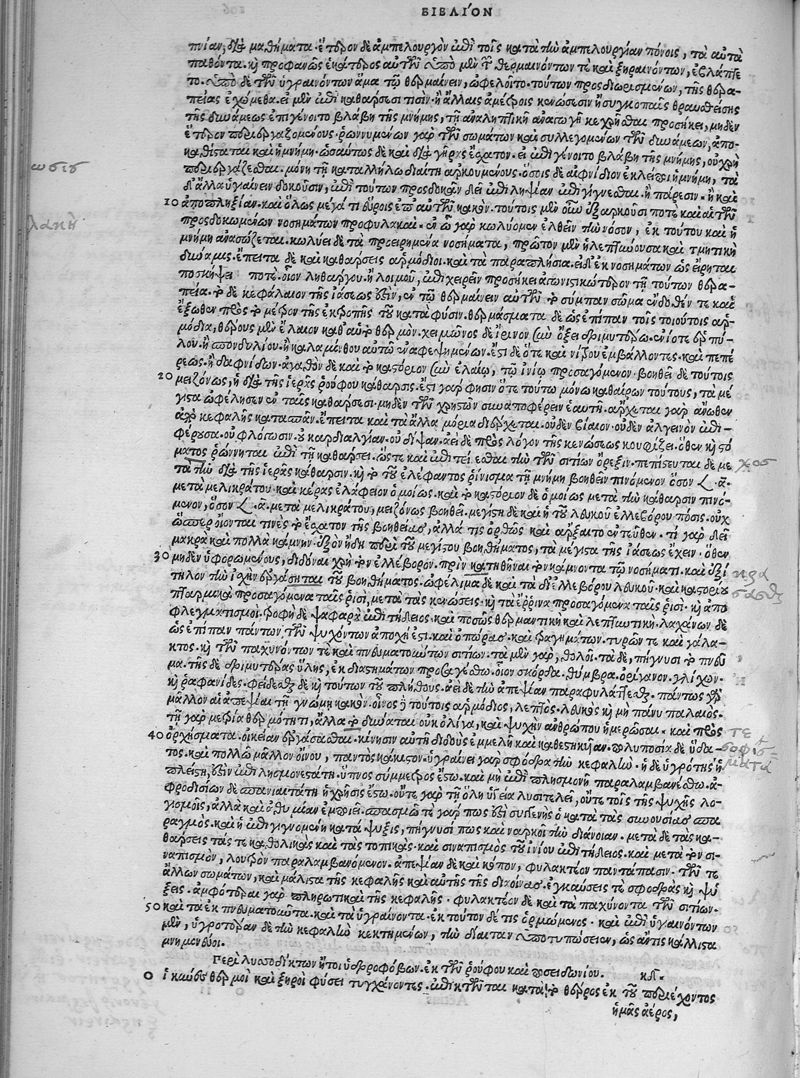 ΒΙΒΛΙΌΝ
πίαν, διὰ μαθήματα. ἕτερον δὲ ἀμπελουργὸν ἐπὶ τοῖς κατὰ τὴν ἀμπελουργίαν πόνοις, τὰ αὐτὰ
παθόντα. καὶ προφανῶς ἑκάτερος αὐτῶν ὑπὸ μὲν τῶν θερμαινόντων τε καὶ ξηραινόντων, ἐβλάπτε
το. ὑπὸ δὲ τῶν ὑγραινόντων ἅμα τῷ θερμαίνειν, ὠφελεῖτο. τούτων προσδιωρισμένων, τῆς θερα
πείας ἐχώμεθα. εἰ μὲν ἐπὶ καθάρσεσι τισὶν ἢ ἄλλαις ἀμέτροις κενώσεσιν ἢ συγκοπαῖς θραυσθείσης
τῆς δυνάμεως ἐπιγένοιτο βλάβη τῆς μνήμης, τῇ ἀναληπτικῇ ἀναγωγῇ κεχρῆσθαι προσήκει, μηδὲν
ἕτερον περιεργαζομένους. ῥωννυμένων γὰρ τῶν σωμάτων καὶ συλλεγομένων τῶν δυνάμεων, ἀπο
καθίσταται καὶ ἡ μνήμη. ὡσαύτως δὲ καὶ διὰ γῆρας ἔσχατον. εἰ ἐπιγένοιτο βλάβη τῆς μνήμης, οὐ χρὴ
περιεργάζεσθαι. μόνῃ τῇ καταλλήλῳ διαίτῃ ἀρκουμένους. ὅσοις δὲ αἰφνίδιον ἐκλείποι ἡ μνήμη, τὰ
δ' ἄλλα ὑγιαίνειν δοκοῦσιν, ἐπὶ τούτων προσδοκᾶν δεῖ ἐπιληψίαν ἐπιγίγνεσθαι. ἢ πάρεσιν. ἢ καὶ
10 ἀποπληξίαν. καὶ ὅλως μέγα τι εὕροις ἐπ' αὐτῶν κακόν. τούτοις μὲν οὖν ἐξαρκοῦσί ποτε καὶ αἱ τῶν
προσδοκωμένων νοσημάτων προφυλακαί. ἐν ᾧ γὰρ κωλύομεν ἐλθεῖν τὴν νόσον, ἐκ τούτου καὶ ἡ
μνήμη ἀνασώζεται. κωλύει δὲ τὰ προειρημένα νοσήματα, πρῶτον μὲν ἡ λεπτύνουσα καὶ τμητικὴ
δύναμις. ἔπειτα δὲ καὶ καθάρσεις ἁρμόδιοι. καὶ τὰ παραπλήσια. εἰ δ' ἐκ νοσημάτων ὡς εἴρηται
ποσκήψει ποτὲ. οἷον ληθάργου ἢ λοιμοῦ, ἐπιχειρεῖν προσήκει ἀγωνιστικώτερον τῇ τούτων θερα
πείᾳ. τὸ δὲ κεφάλαιον τῆς ἰάσεως ἐστὶν, ἐν τῷ θερμαίνειν αὐτῶν τὸ σύμπαν σῶμα ἔνδοθέν τε καὶ
ἔξωθεν πρὸς τὸ μέτρον τῆς ἐκτροπῆς τοῦ κατὰ φύσιν. θερμάσματα δὲ ὡς ἐπίπαν τοῖς τοιούτοις ἁρ
μόδια, θέρους μὲν ἔλαιον καθ' αὑτὸ θερμὸν. χειμῶνος δὲ ἴρινον σὺν ὄξει δριμυτέρῳ. ἐνίοτε ἑρπύ
λου. ἢ σπονδυλίου. ἢ καλαμίνθου αὐτῷ ἐναφεψημένων. ἔστι δὲ ὅτε καὶ νίτρου ἐμβάλλοντες. καὶ πεπέ
ρεως. ἢ δαφνίδων. ἀγαθὸν δὲ καὶ τὸ καστόριον σὺν ἐλαίῳ, τῷ ἰνίῳ προσαγόμενον. βοηθεῖ δὲ τούτοις
20 μειζόνως, ἡ διὰ τῆς ἱερᾶς ῥούφου κάθαρσις. ἔστι γάρ φησιν ὅτε τούτῳ μόνῳ καθαίρων τούτους, τὰ μέ
γιστα ὠφέλησεν ἐν ταῖς καθάρσεσι. μηδὲν τῶν χρηστῶν συναποφέρειν ἑαυτῇ. ἄρχεται γὰρ ἄνωθεν
ἀπὸ κεφαλῆς κατασπᾶν. ἔπειτα καὶ τὰ ἄλλα μόρια διέρχεται. οὐδὲν βίαιον. οὐδὲν ἀλγεινὸν ἐπι
φέρουσα. οὐ φλόγωσιν. οὐ καρδιαλγίαν. οὐ δίψαν. ἀεὶ δὲ πρὸς λόγον τῆς κενώσεως κουφίζει. ὅθεν καὶ στό
ματος ῥώννυται ἐπὶ τῇ καθάρσει. ὥστε καὶ ἐπιτείνεσθαι τὴν τῶν σιτίων ὄρεξιν. πεπίστευται δὲ με
τὰ τὴν διὰ τῆς ἱερᾶς κάθαρσιν. καὶ τὸ τοῦ ἐλέφαντος ῥίνισμα τῇ μνήμῃ βοηθεῖν πινόμενον ὅσον 𐅻. α.
μετὰ μελικράτου. καὶ κέρας ἐλάφειον ὁμοίως. καὶ τὸ καστόριον δὲ ὁμοίως μετὰ τὴν κάθαρσιν πινό
μενον, ὅσον 𐅻. α. μετὰ μελικράτου, μειζόνως βοηθεῖ. μεγίστη δὲ καὶ ἡ τοῦ λευκοῦ ἐλλεβόρου πόσις. οὐχ
ὥσπερ οἴονταί τινες τὸ ἔσχατον τῆς βοηθείας, ἀλλά τις ὀρθῶς καὶ ἄρξαιτο ἐντεῦθεν. τί γὰρ δεῖ
μακρὰ καὶ πολλὰ κάμνειν. ἐξὸν ἤδη περὶ τοῦ μεγίστου βοηθήματος, τὰ μέγιστα τῆς ἰάσεως ἔχειν. ὅθεν
30 μηδὲν ὑφορωμένους, διδόναι χρὴ τὸν ἐλλέβορον. πρὶν κατηθῆναι τὸν κάμνοντα τῷ νοσήματι. καὶ ἐξί
τηλον τὴν ἰσχὺν ἐργάσηται τοῦ βοηθήματος. ὠφέλιμα δὲ καὶ τὰ δι' ἐλλεβόρου λευκοῦ. καὶ καστορίου
πταρμικὰ προσαγόμενα ταῖς ῥισὶ, μετὰ τὰς κενώσεις. καὶ τὰ ἔρρινα προσαγόμενα ταῖς ῥισί. καὶ ἀπο
φλεγματισμοί. τροφὴ δὲ ψαφαρὰ ἐπιτήδειος. καὶ ποσῶς θερμαντικὴ καὶ λεπτυντική. λαχάνων δὲ
ὡς ἐπίπαν πάντων τῶν ψυχόντων ἀποχὴ ἔστω. καὶ ὀπώρας. καὶ φαγημάτων. τυρῶν τε καὶ γάλα
κτος. καὶ τῶν παχυνόντων τε καὶ πνευματούντων σιτίων. τὰ μὲν γὰρ, θολοῖ. τὰ δὲ, πήγνυσι τὸ πνεῦ
μα. τῆς δὲ δριμυτέρας ὕλης, ἐκ διαστημάτων προσαγέσθω. οἷον σκόρδα. θύμβρα. ὀρίγανον. γλίχων.
καὶ ῥαφανίδες. φείδεσθαι δὲ καὶ τούτων τοῦ πλήθους. ἀεὶ δὲ τὴν ἀπεψίαν παραφυλάττεσθαι. πάντως γὰρ
μᾶλλον αἱ ἀπεψίαι τῇ γνώμῃ κακόν. οἶνος δὲ τούτοις ἁρμόδιος, λεπτὸς. λευκὸς καὶ μὴ πάνυ παλαιός.
τῇ γὰρ μετρίᾳ θερμότητι, ἄλλα τε δύναται οὐκ ὀλίγα, καὶ ψυχὴν ἀνθρώπου ἡμερῶσαι. καὶ πρὸς
40 ὀρχήσματα. οἰκείαν ἐργάσασθαι. κίνησιν αὐτῇ διδοὺς ἐμμελῆ καὶ καθεστηκυῖαν. πολυποσία δὲ ὕδα
τος. καὶ πολλῷ μᾶλλον οἴνου, παντὸς κάκιστον. ὑγραίνει γὰρ σφόδρα τὴν κεφαλήν. ἡ δὲ ὑγρότης ἡ
πλείστη, ἐστὶν ἐπιλησμονεστάτη. ὕπνος σύμμετρος ἔστω. καὶ μὴ ἐπὶ πλησμονῇ παραλαμβανέσθω. ἀ
φροδισίων δὲ σπανιωτάτη ἡ χρῆσις ἔστω. οὔτε γὰρ τῇ ὅλῃ ὑγείᾳ λυσιτελεῖ, οὔτε τοῖς τῆς ψυχῆς λο
γισμοῖς, ἀλλὰ καὶ ἀθυμίαν ἐμποιεῖ. σπασμῷ τε γάρ πως ἐστὶ συγγενὴς ὁ κατὰ τὰς συνουσίας σπα
ραγμὸς. καὶ ἡ ἐπιγιγνομένη κατάψυξις, πήγνυσί πως καὶ ναρκοῖ τὴν διάνοιαν. μετὰ δὲ τὰς κα
θάρσεις τάς τε καθολικὰς καὶ τὰς τοπικάς. καὶ σιναπισμὸς τοῦ ἰνίου ἐπιτήδειος. καὶ μετὰ τὸν σι
ναπισμὸν, λουτρὸν παραλαμβανόμενον. ἀπεψίαν δὲ καὶ κόπον, φυλακτέον παντάπασιν. τῶν τε
ἄλλων σωμάτων, καὶ μάλιστα τῆς κεφαλῆς καὶ αὐτῆς τῆς διανοίας. ἐγκαύσεις τὲ σφοδρὰς καὶ ψύ
ξεις. ἀμφότεραι γὰρ πληρωτικαὶ τῆς κεφαλῆς. φυλακτέον δὲ καὶ τὰ παχύνοντα τῶν σιτίων.
50 καὶ τὰ ἐκπνευματοῦντα. καὶ τὰ ὑγραίνοντα. ἐκ τούτων δέ τις ὁρμώμενος. καὶ ἐπὶ ὑγιαινόντων
μὲν, ὑγροτέραν δὲ τὴν κεφαλὴν κεκτημένων, τὴν δίαιταν ὑποτυπώσειεν, ὡς ἄν τις κάλλιστα
μνημονεύοι.
Περὶ λυσσοδήκτων ἤτοι ὑδροφόβων. ἐκ τῶν ῥούφου καὶ ποσειδωνίου. κδ.
Οἱ κύνες θερμοὶ καὶ ξηροὶ φύσει τυγχάνοντες. ἐπεὶ κατὰ τὸ θέρος ἐκ τοῦ περιέχοντος
ἡμᾶς ἀέρος,